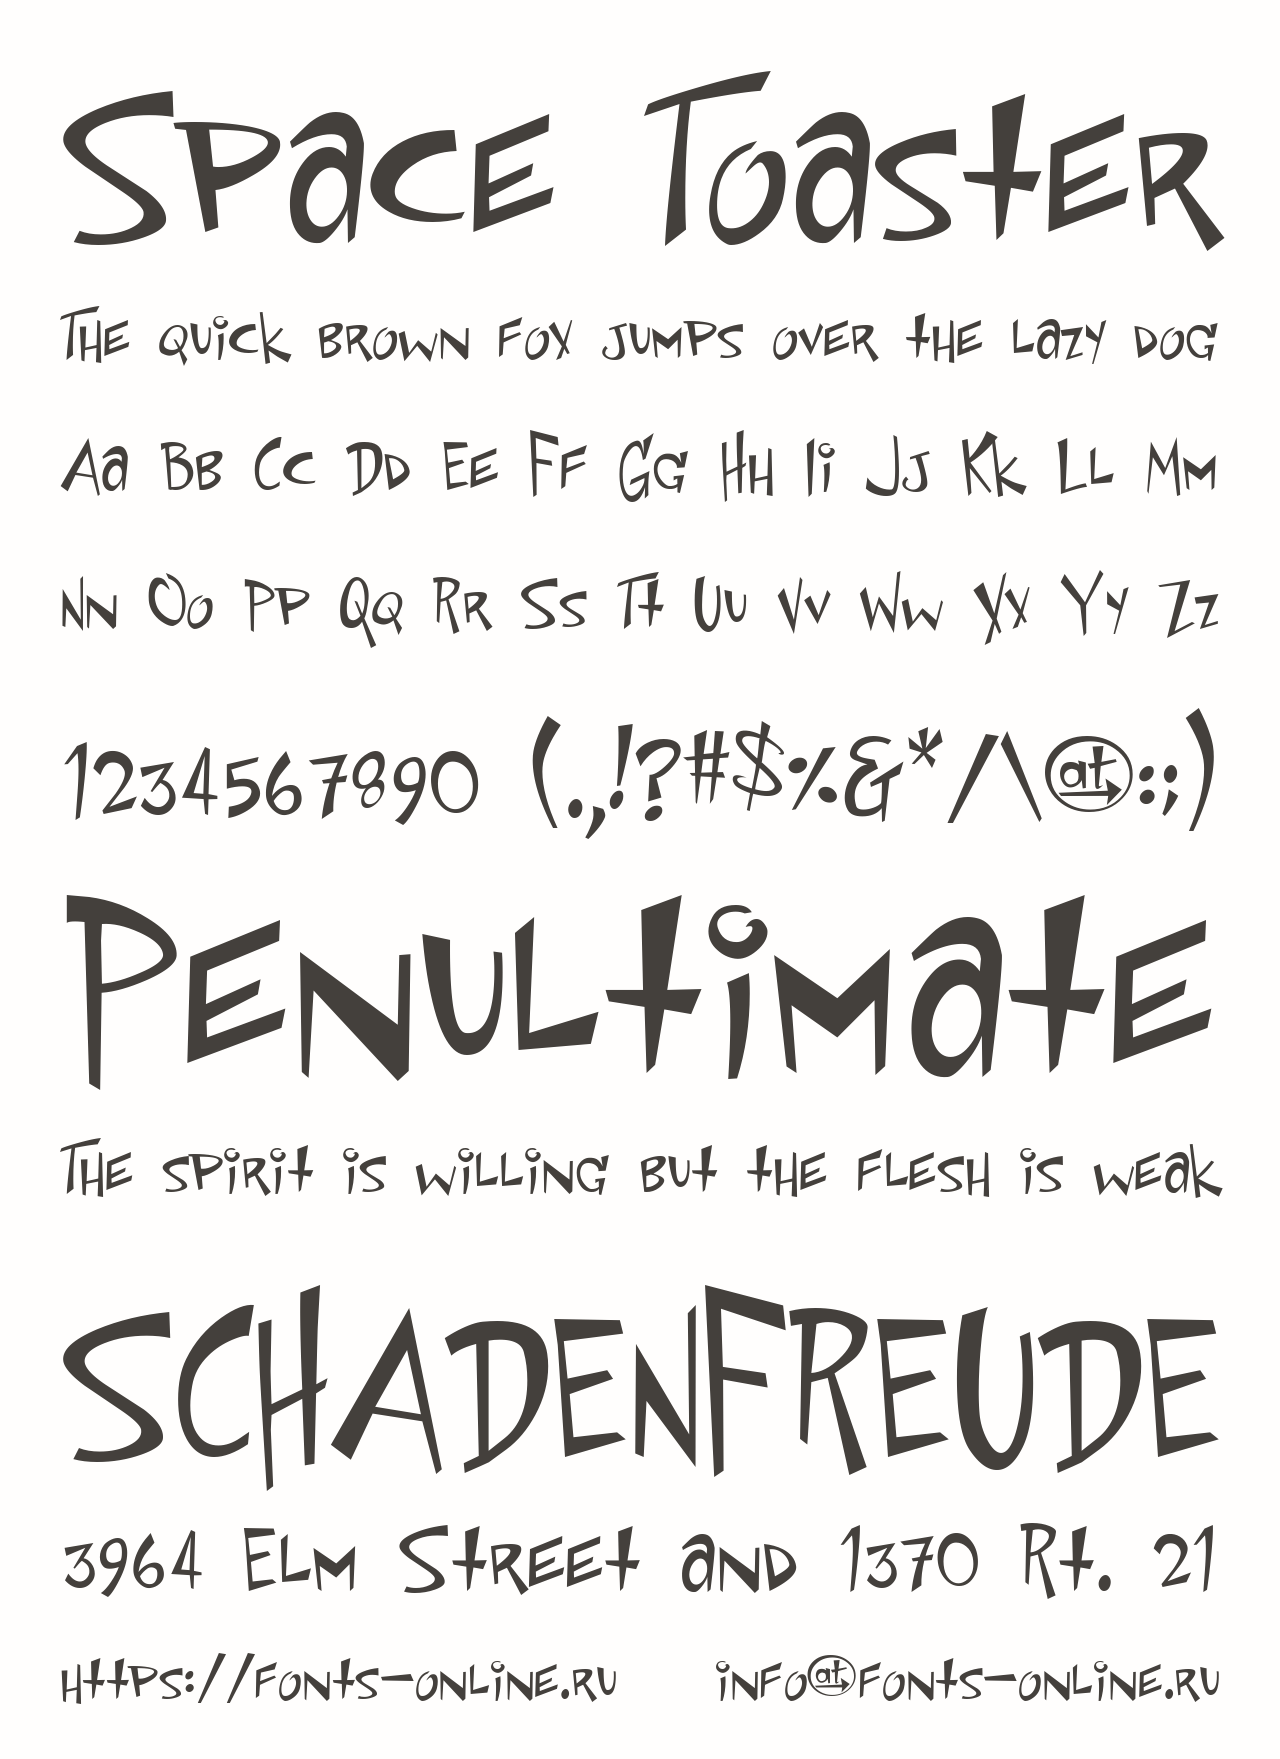 Space Toaster
The quick brown fox jumps over the lazy dog
Aa Bb Cc Dd Ee Ff Gg Hh Ii Jj Kk Ll Mm
Nn Oo Pp Qq Rr Ss Tt Uu Vv Ww Xx Yy Zz
1234567890 (.,!?#$%&*/\@:;)
Penultimate
The spirit is willing but the flesh is weak
SCHADENFREUDE
3964 Elm Street and 1370 Rt. 21
https://fonts-online.ru info@fonts-online.ru